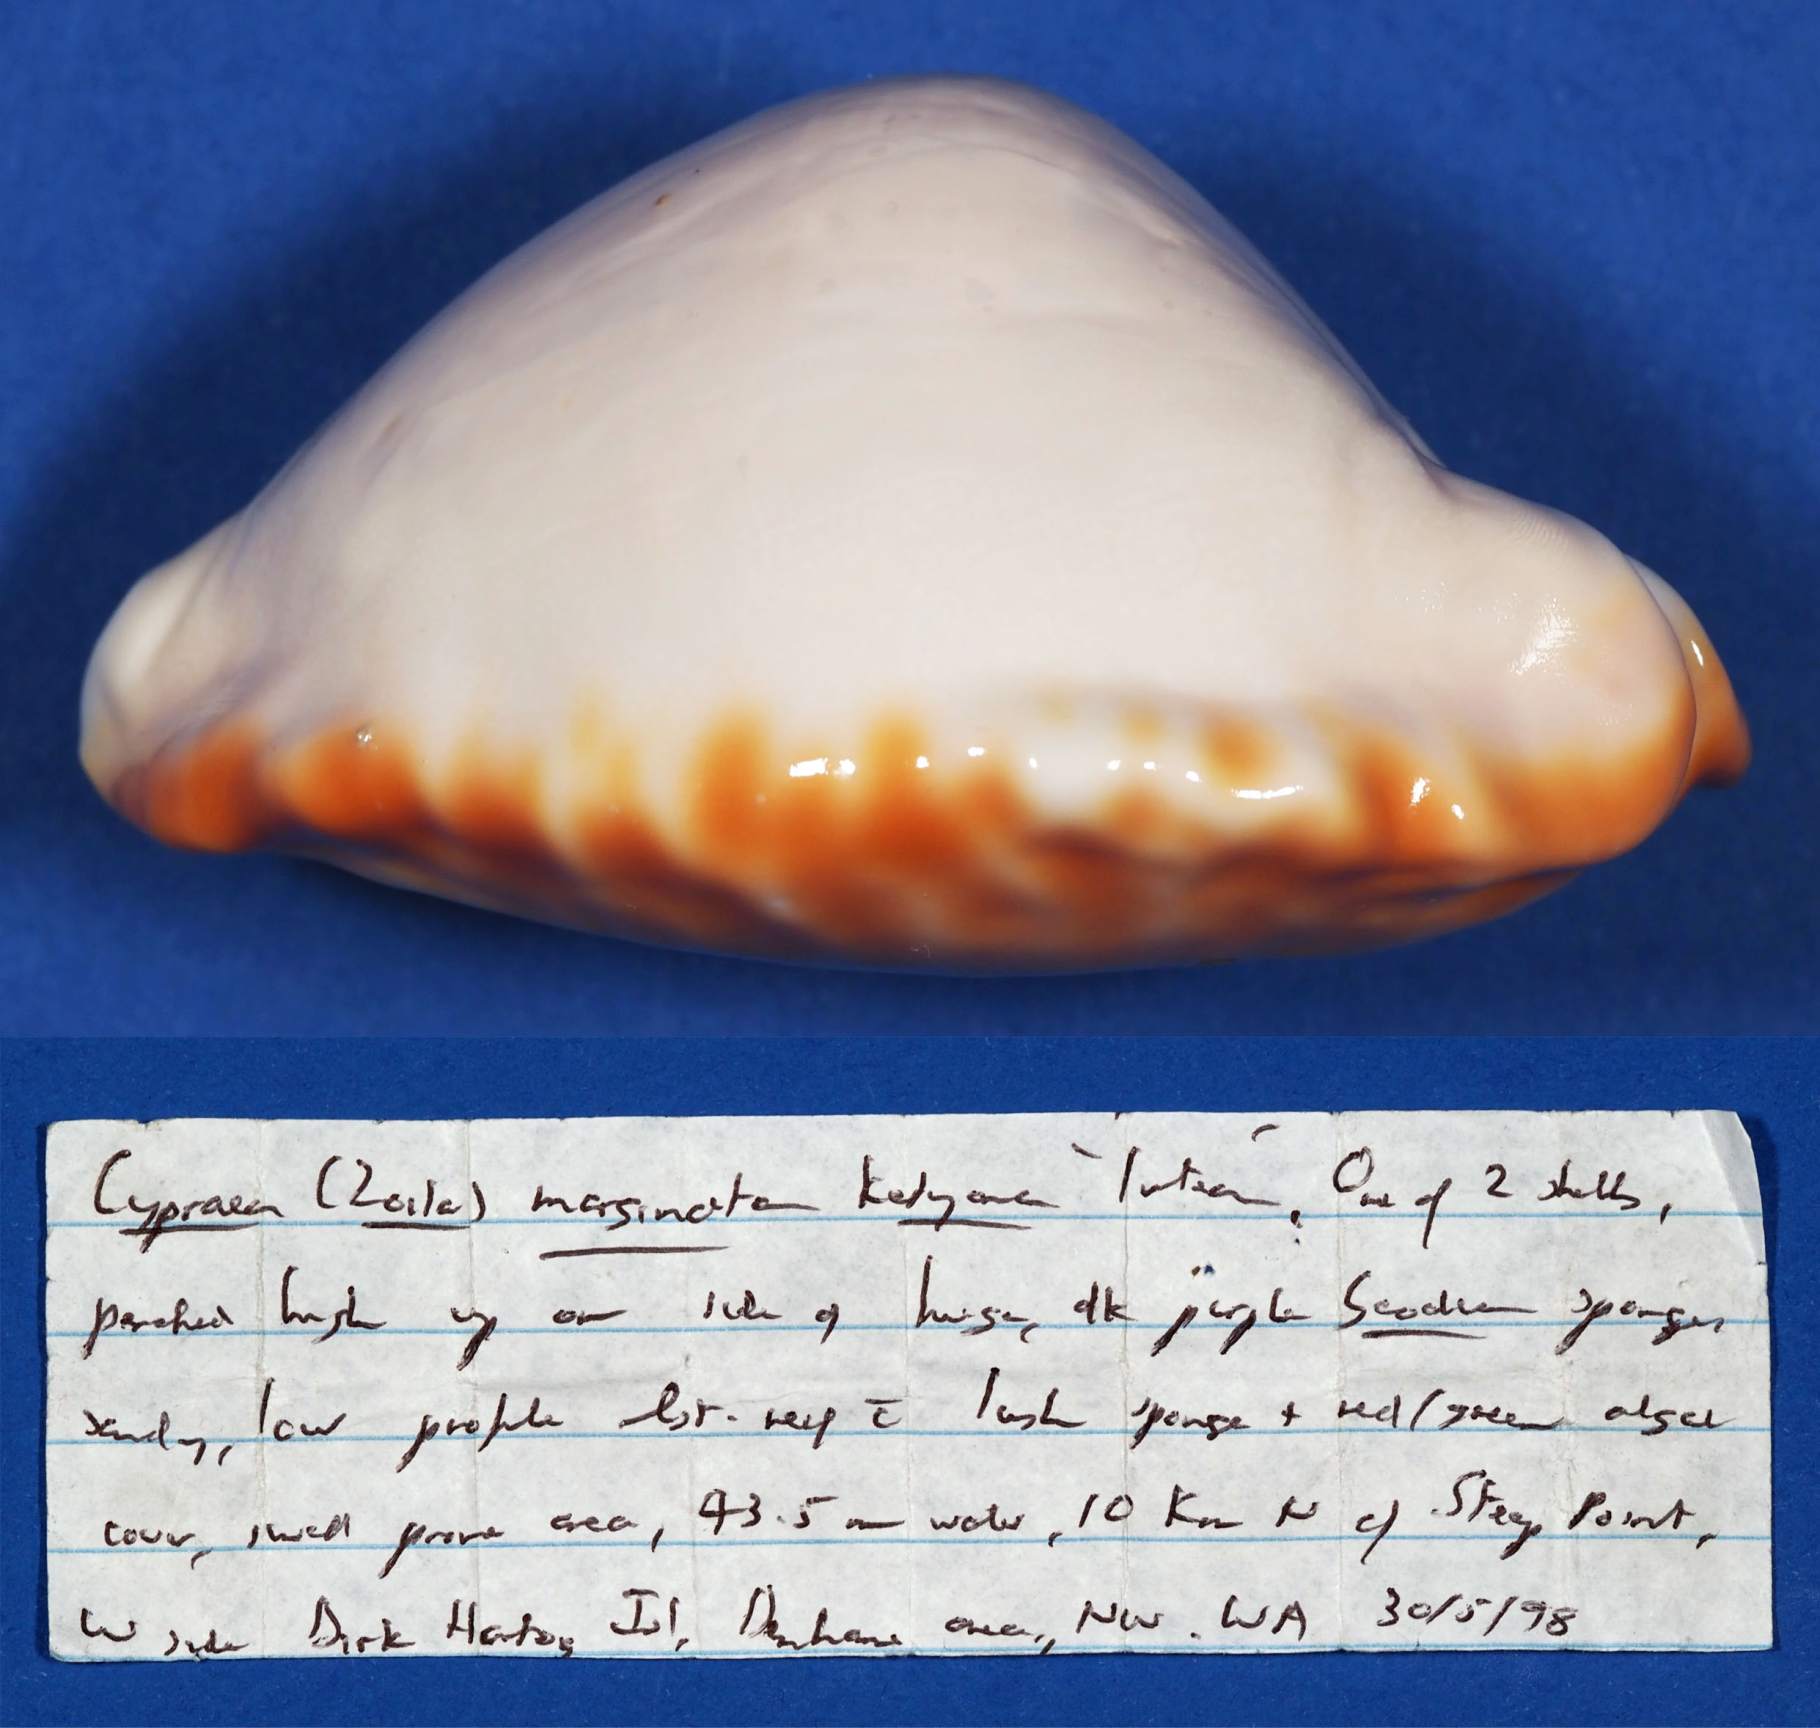 Cypraea (Zoila) marginata ketyana `lutea´. One of 2 shells,
perched high up on side of huge, dk purple sponge,
sandy, low profile lst. reef c̄ lush sponge + red/green algal
cover, swell prone area, 43.5 m water, 10 Km N of Steep Point,
W side Dirk Hartog Isl, Denham area, NW. WA 30/5/98